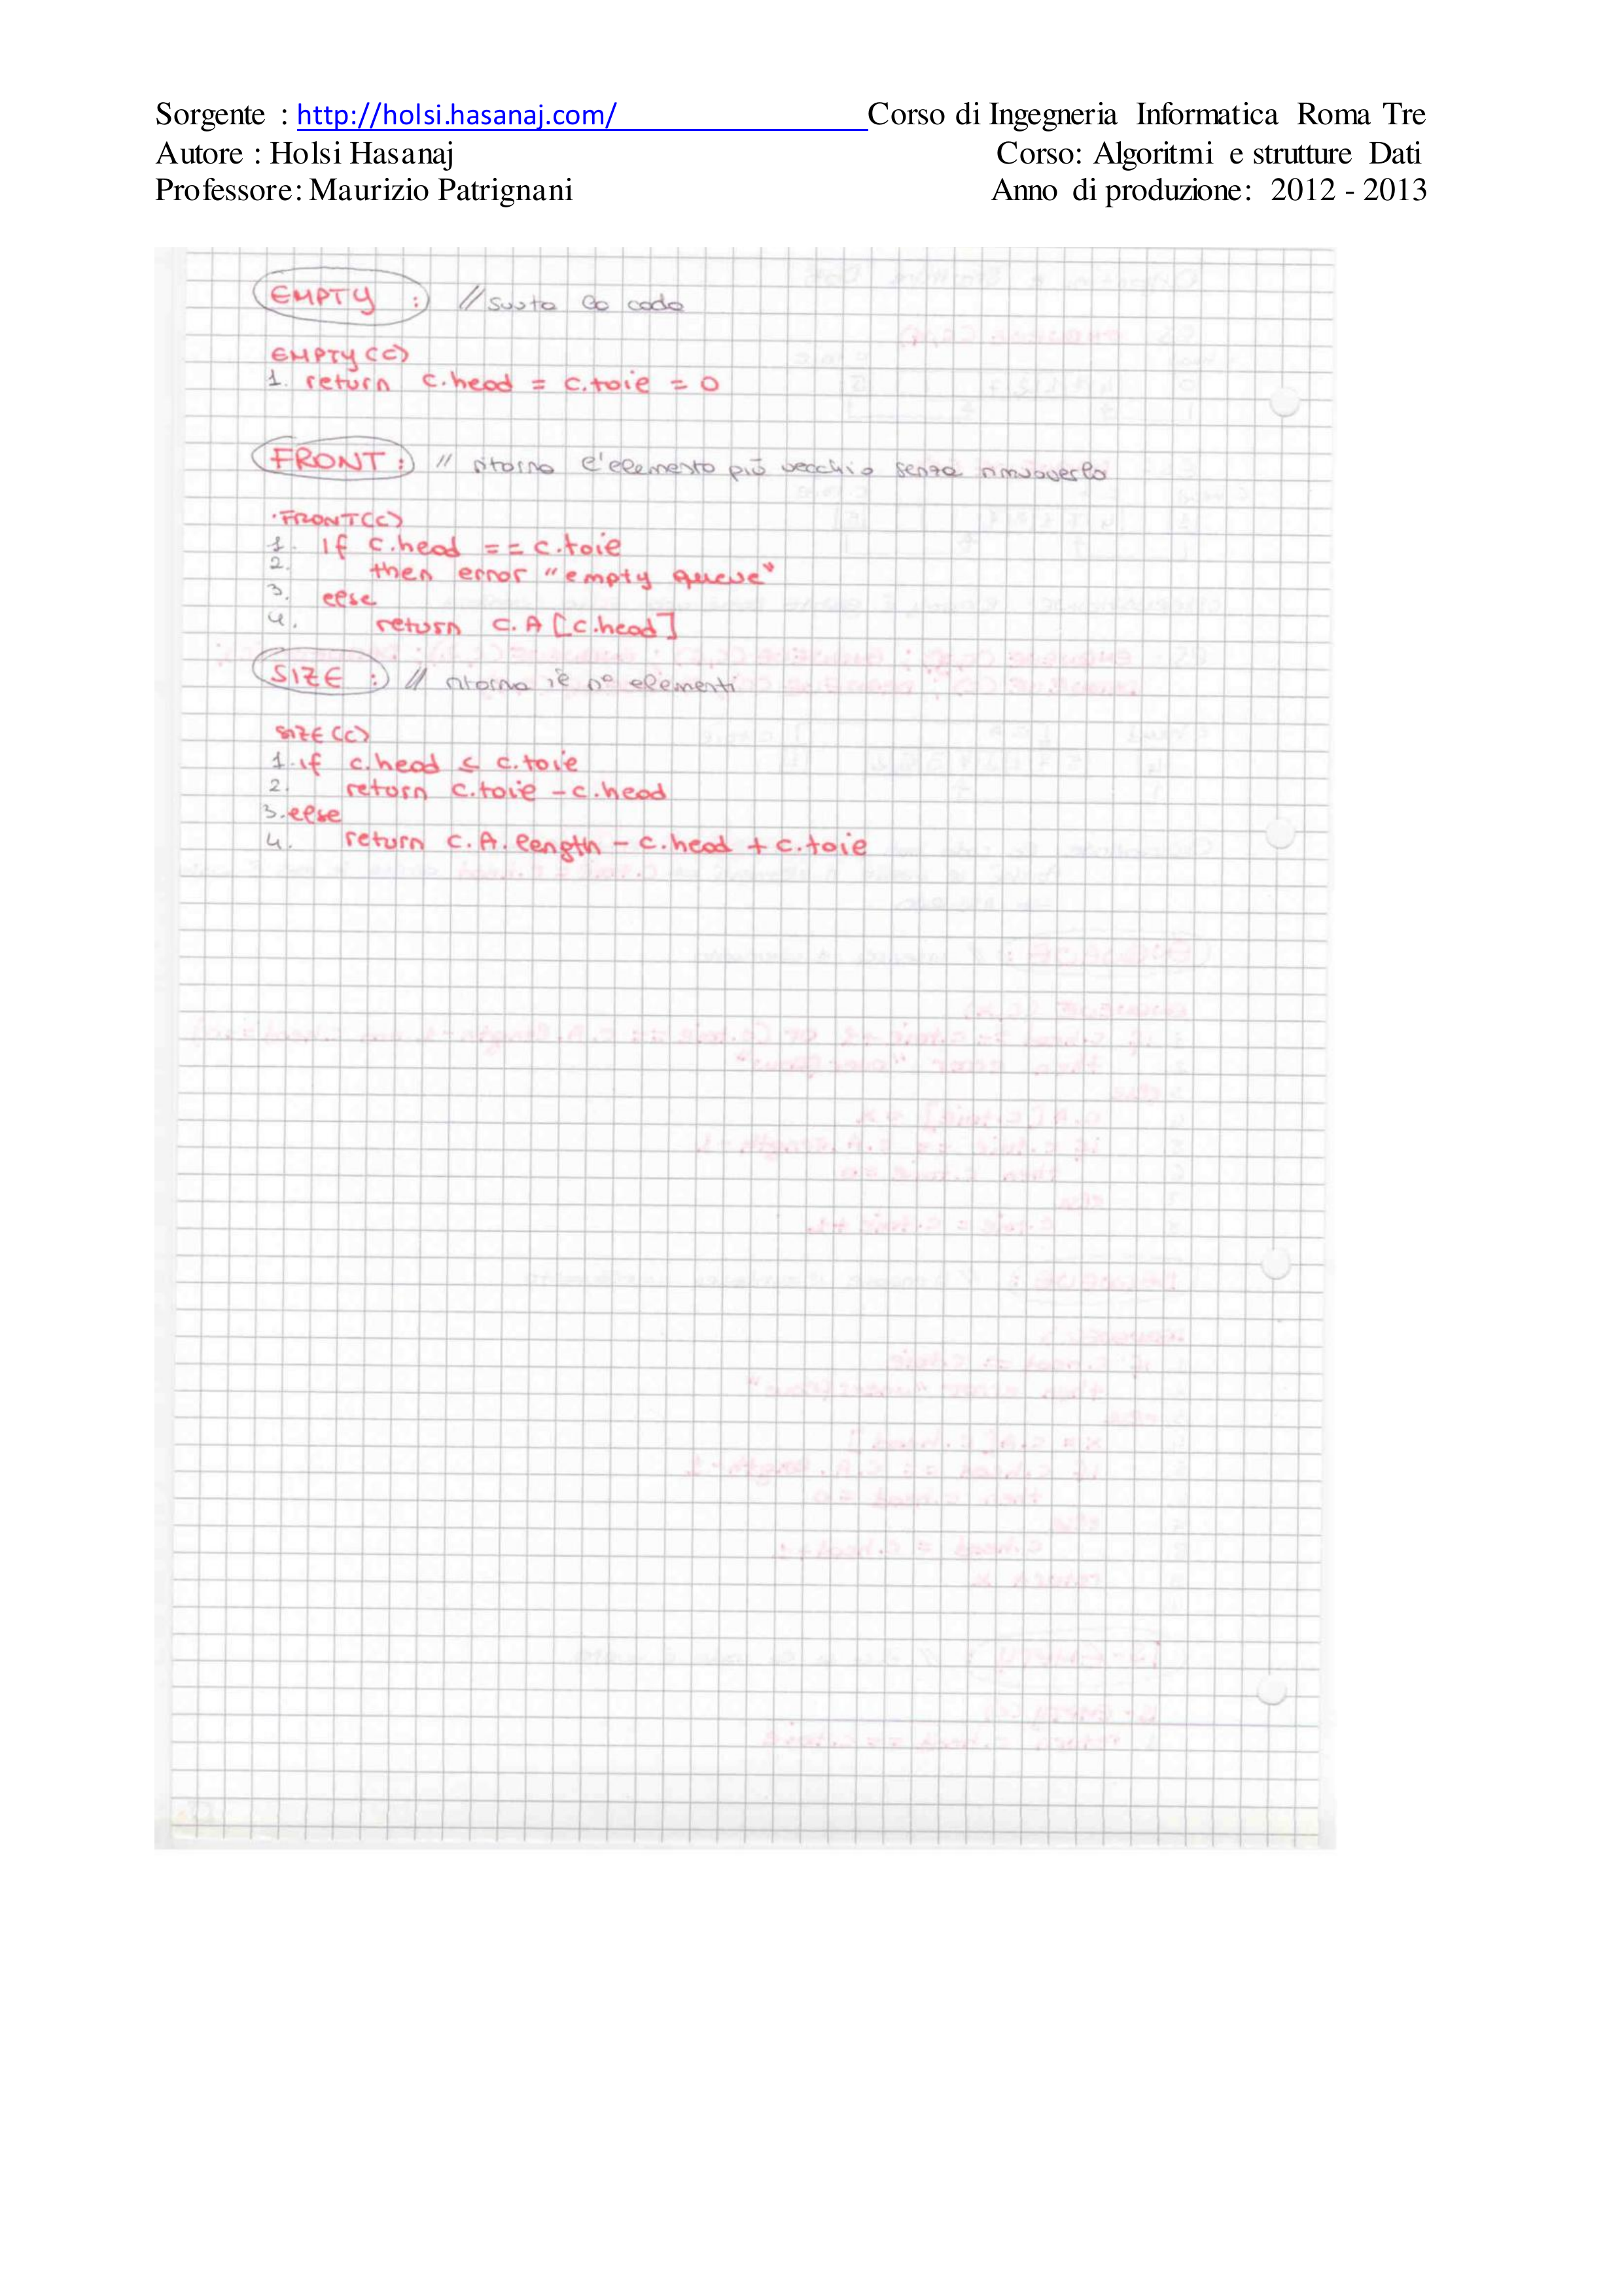 Sorgente : http://holsi.hasanaj.com/ Corso di Ingegneria Informatica Roma Tre
Autore : Holsi Hasanaj Corso: Algoritmi e strutture Dati
Professore: Maurizio Patrignani Anno di produzione: 2012 - 2013
EMPTY : // svota la coda
EMPTY (C)
1. return c.head = c.tail = 0
FRONT : // ritorna l'elemento più vecchio senza rimuoverlo
FRONT(C)
1. if c.head == c.tail
2. then error "empty queue"
3. else
4. return c.A[c.head]
SIZE : // ritorna il n° elementi
SIZE (C)
1. if c.head ≤ c.tail
2. return c.tail - c.head
3. else
4. return c.A.length - c.head + c.tail